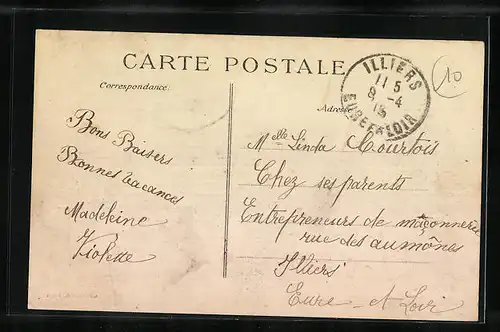 CARTE POSTALE
Correspondance
Adresse
ILLIERS
11 5
8 -4
EURE-ET-LOIR
10
Bons Baisers
Bonnes vacances
Madeleine
Violette
Melle Linda Courtois
Chez ses parents
Entrepreneurs de maçonnerie
rue des aumônes
Illiers
Eure-et-Loir